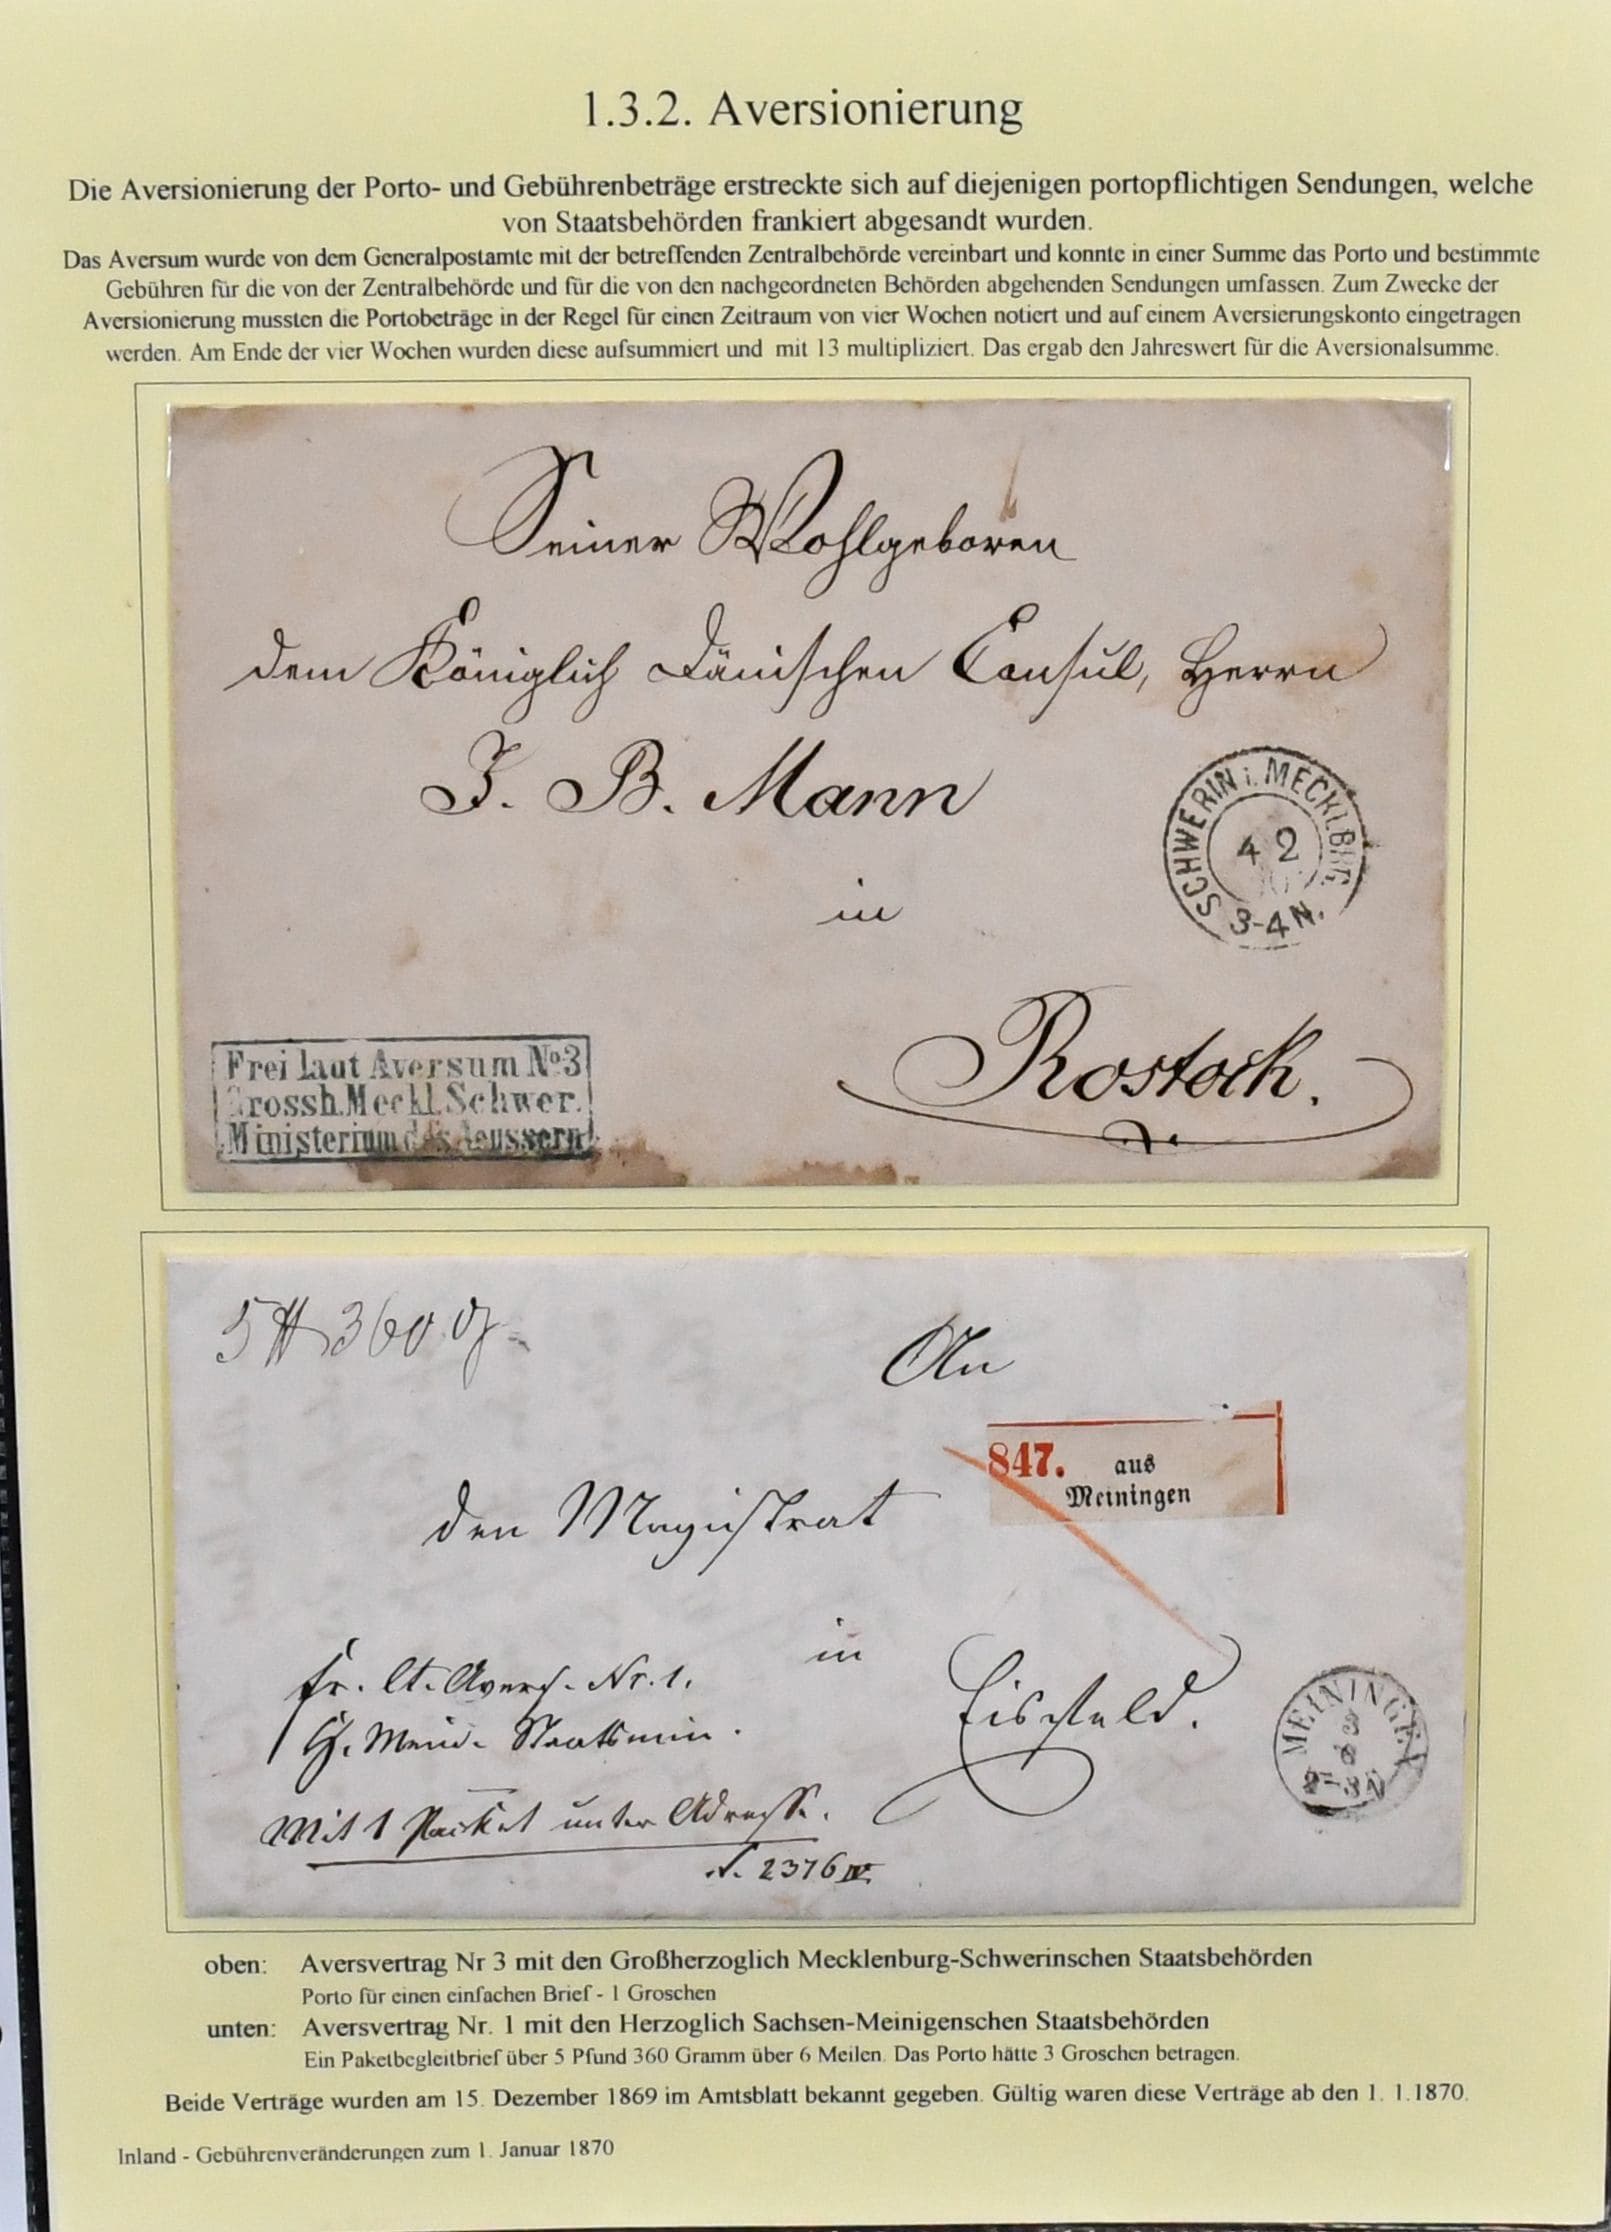 1.3.2. Aversionierung
Die Aversionierung der Porto- und Gebührenbeträge erstreckte sich auf diejenigen portopflichtigen Sendungen, welche
von Staatsbehörden frankiert abgesandt wurden.
Das Aversum wurde von dem Generalpostamte mit der betreffenden Zentralbehörde vereinbart und konnte in einer Summe das Porto und bestimmte
Gebühren für die von der Zentralbehörde und für die von den nachgeordneten Behörden abgehenden Sendungen umfassen. Zum Zwecke der
Aversionierung mussten die Portobeträge in der Regel für einen Zeitraum von vier Wochen notiert und auf einem Aversierungskonto eingetragen
werden. Am Ende der vier Wochen wurden diese aufsummiert und mit 13 multipliziert. Das ergab den Jahreswert für die Aversionalsumme.
Seiner Wohlgeboren
dem Königlich Dänischen Consul, Herrn
J. B. Mann
SCHWERIN i. MECKLBRG.
4 2
3-4 N.
in
Rostock.
Frei laut Aversum No 3
Grossh. Meckl. Schwer.
Ministerium des Aeussern
5 ℔ 360 g
An
847. aus
Meiningen
den Magistrat
in
Eisfeld.
fr. lt. Avers. Nr. 1.
H. Mein. Staatsmin.
Mit 1 Packet unter Adresse.
N. 2376 IV.
MEININGEN
23 8
2-3 N
oben: Aversvertrag Nr 3 mit den Großherzoglich Mecklenburg-Schwerinschen Staatsbehörden
Porto für einen einfachen Brief - 1 Groschen
unten: Aversvertrag Nr. 1 mit den Herzoglich Sachsen-Meinigenschen Staatsbehörden
Ein Paketbegleitbrief über 5 Pfund 360 Gramm über 6 Meilen. Das Porto hätte 3 Groschen betragen.
Beide Verträge wurden am 15. Dezember 1869 im Amtsblatt bekannt gegeben. Gültig waren diese Verträge ab den 1. 1.1870.
Inland - Gebührenveränderungen zum 1. Januar 1870